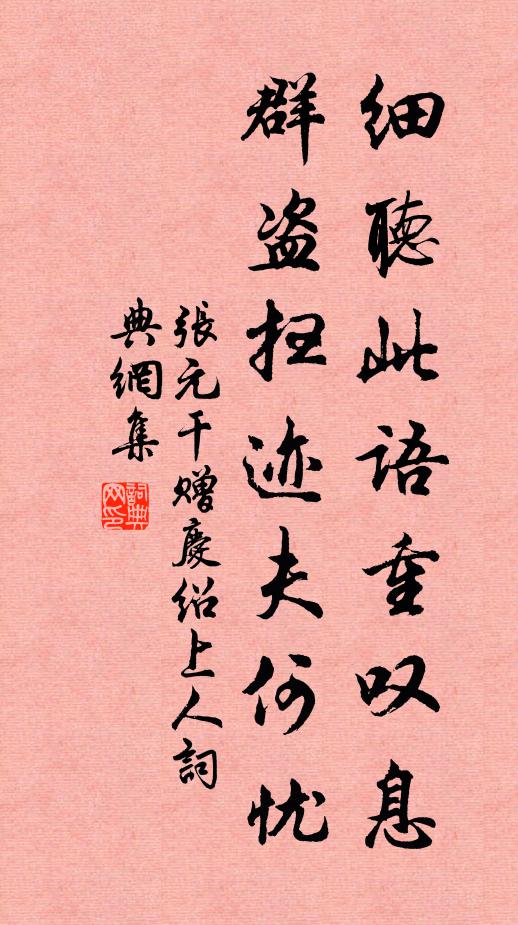 细聽此语重叹息
群盗扫迹夫何忧
張元干赠慶绍上人詞
典網集
詞典网印